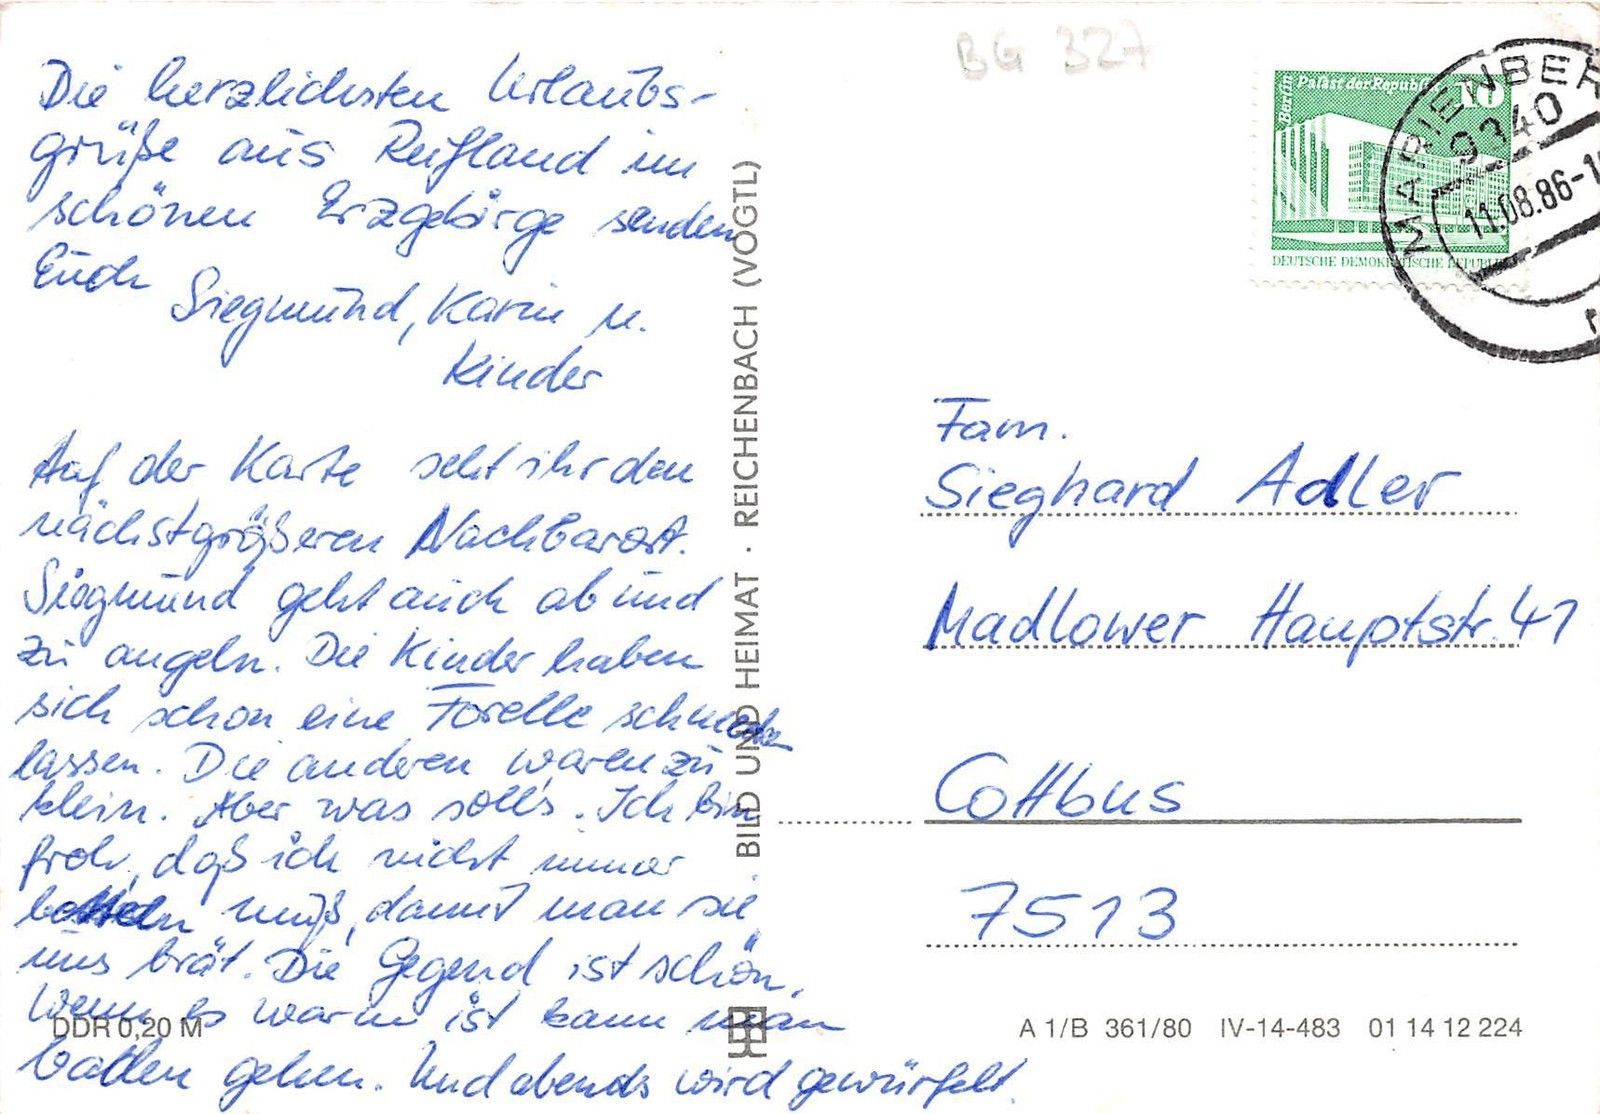 BG 327
Die herzlichsten Urlaubs-
grüße aus Rußland im
schönen Erzgebirge senden
Euch
Siegmund, Karin u.
Kinder
Auf der Karte seht ihr den
nächstgrößeren Nachbarort.
Siegmund geht auch ab und
zu angeln. Die Kinder haben
sich schon eine Forelle schmecken
lassen. Die anderen waren zu
klein. Aber was solls. Ich bin
froh, daß ich nicht immer
betteln muß, damit man sie
uns brät. Die Gegend ist schön.
Wenn es warm ist kann man
baden gehen. Und abends wird gewürfelt.
DDR 0,20 M
BILD UND HEIMAT · REICHENBACH (VOGTL)
Berlin Palast der Republik
10
DEUTSCHE DEMOKRATISCHE REPUBLIK
MARIENBER
9340
11.08.86-1
Fam.
Sieghard Adler
Madlower Hauptstr. 41
Cottbus
7513
A 1/B 361/80 IV-14-483 01 14 12 224